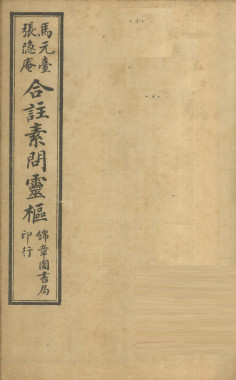 馬元臺
張隱庵
合註素問靈樞
錦章圖書局
印行